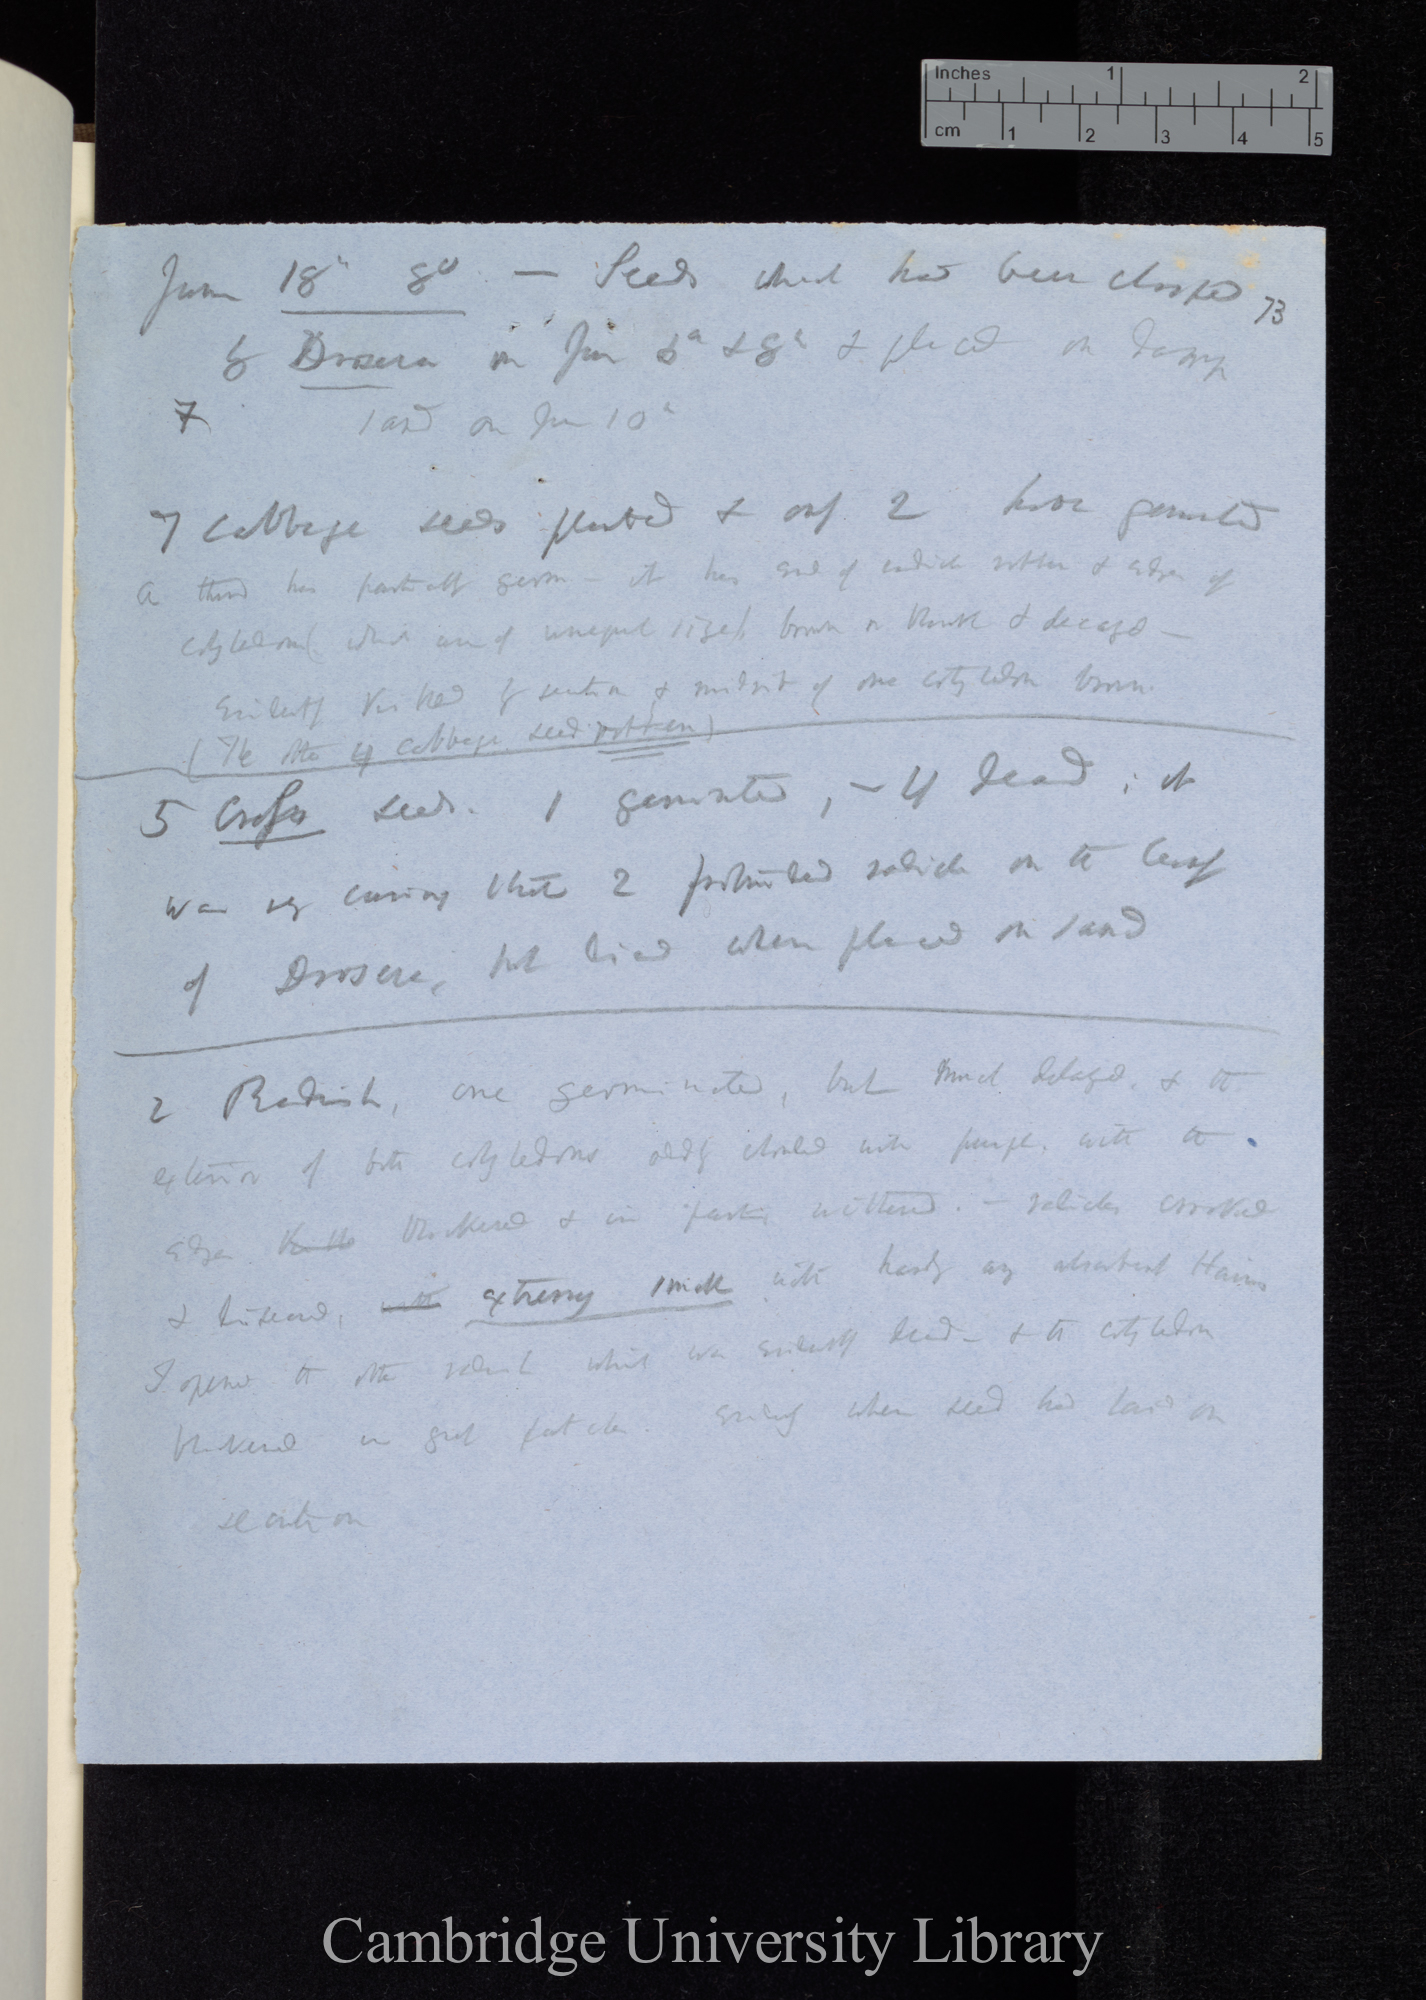 Inches 1 2
cm 1 2 3 4 5
June 18th 8° — Seeds which had been clasped 73
by Drosera on June 5th & 8th & placed on damp
7 sand on June 10th
7 Cabbage seeds planted & only 2 have germinated
a third has partially germ – it has end of radicle rotten & edges of
cotyledons (which are of unequal size) brown or black & decayed —
Evidently killed by secretion & midrib of one cotyledon brown.
(The other 4 cabbage seed rotten)
5 seeds. 1 germinated, – 4 dead ; it
was very curious that 2 protruded radicle on the leaf
of Drosera, but died when placed on sand
2 Radish, one germinated, but much delayed, & the
exterior of both cotyledons oddly clouded with purple, with the
edges blackened & in parts withered. — radicles crooked
& diseased, with extremy small with hardly any absorbent Hairs
I opened the other radish which was evidently dead – & the cotyledon
blackened in great patches. Evidently when seed had laid on
secretion
Cambridge University Library